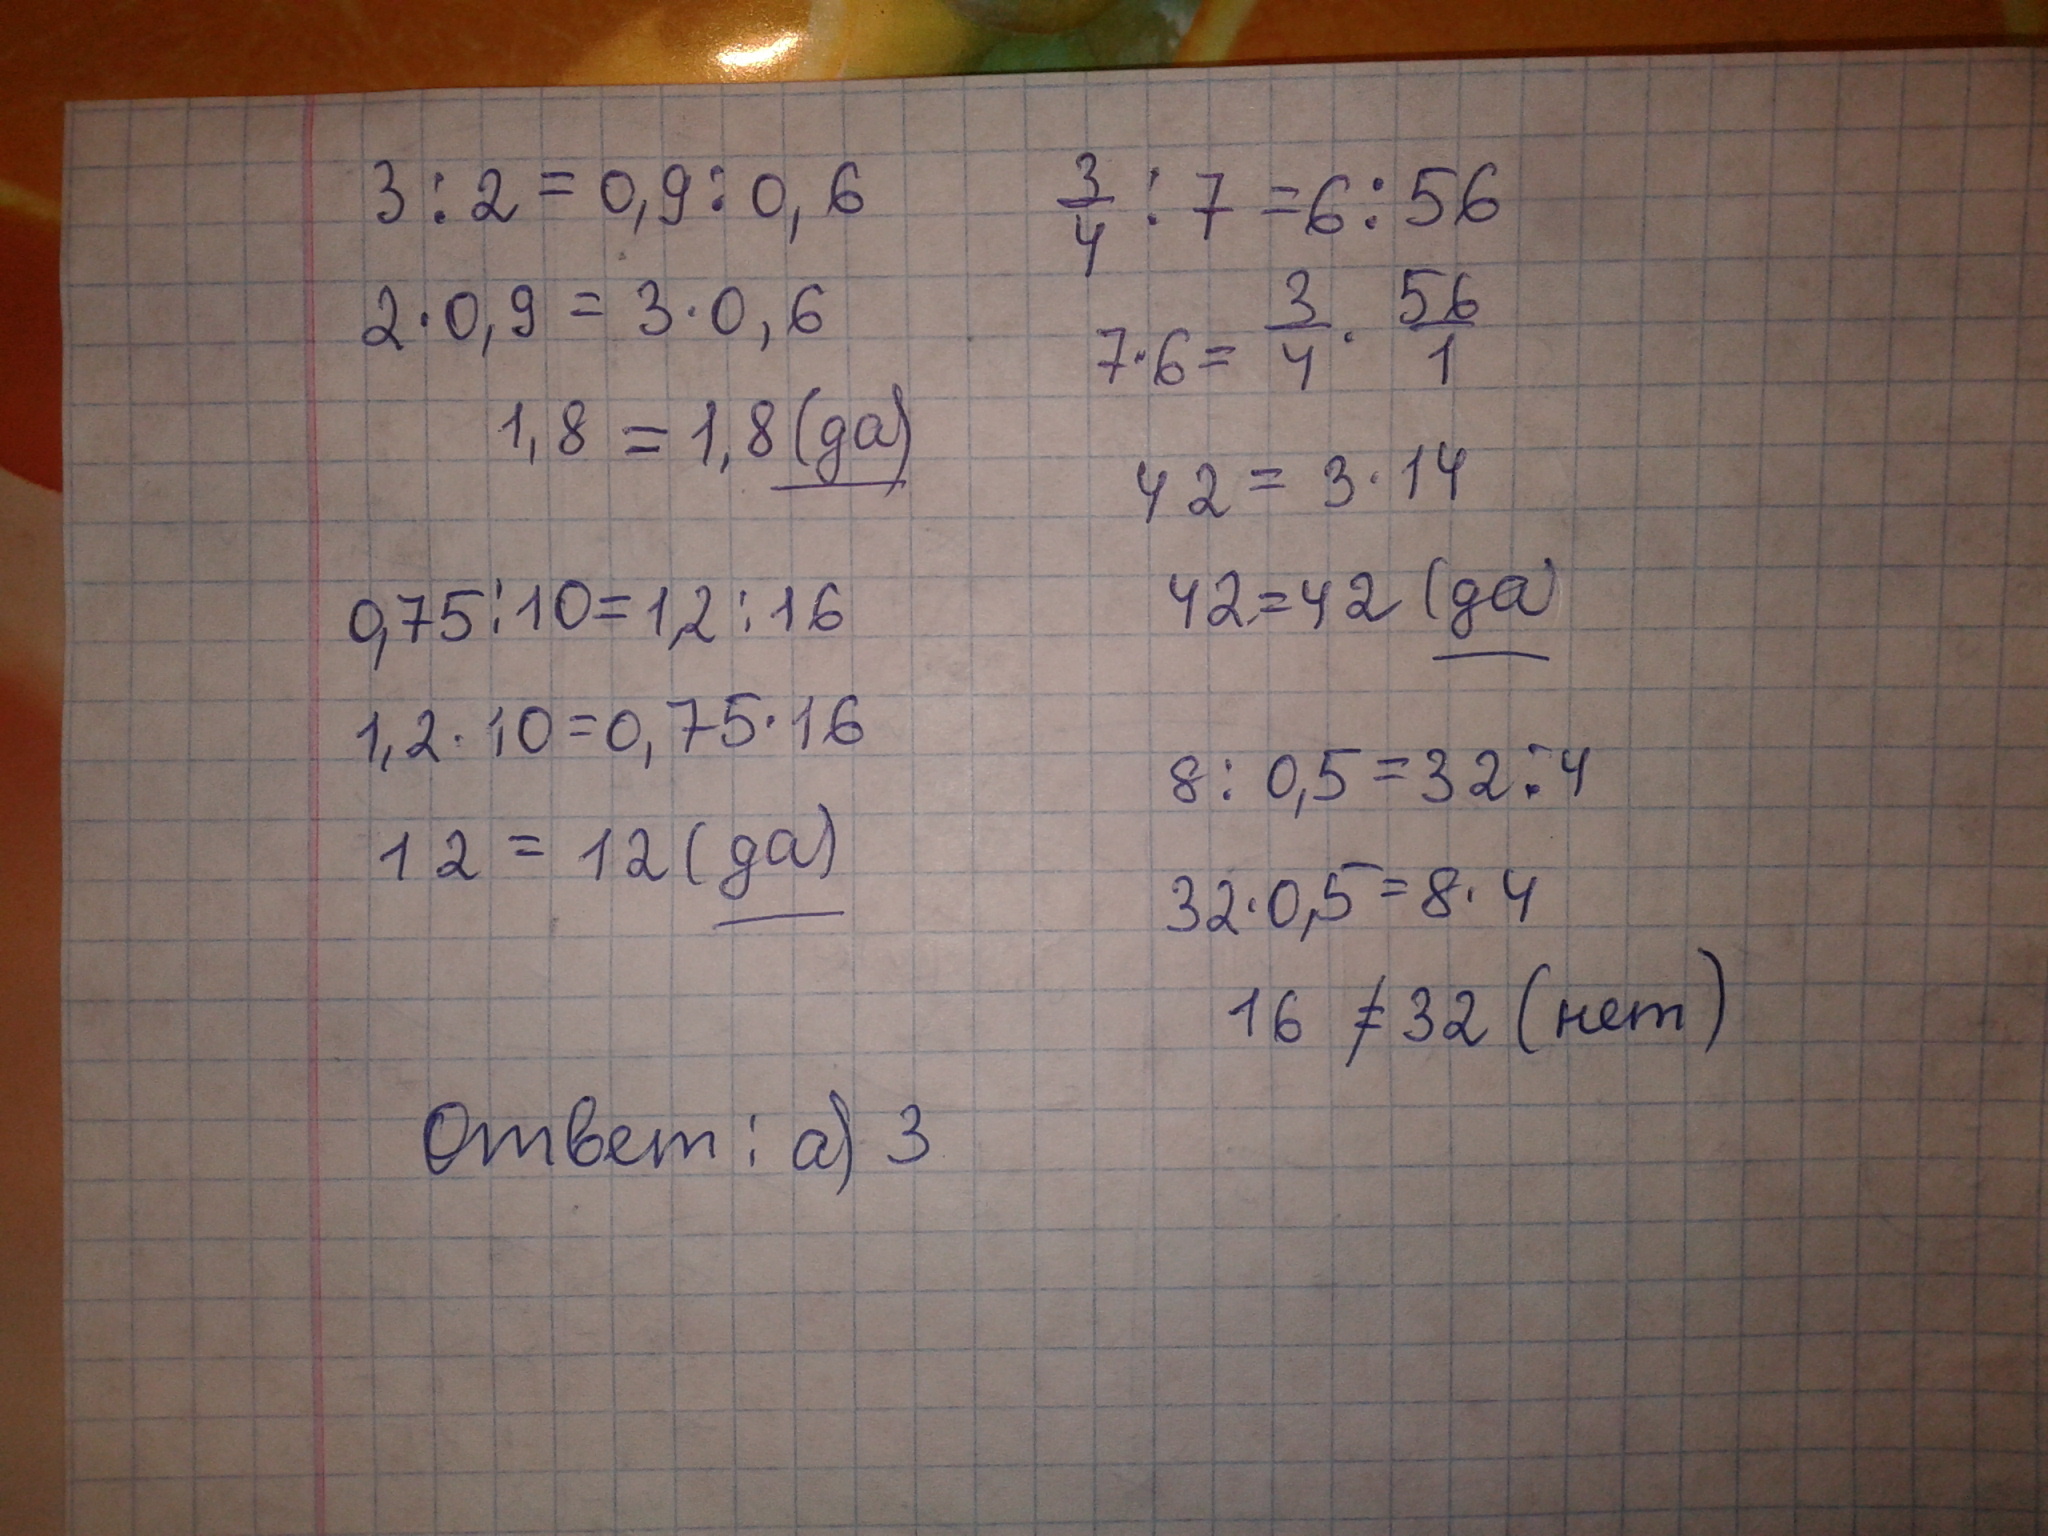 3 : 2 = 0,9 : 0,6
2 · 0,9 = 3 · 0,6
1,8 = 1,8 (да)
0,75 : 10 = 1,2 : 16
1,2 · 10 = 0,75 · 16
12 = 12 (да)
3/4 : 7 = 6 : 56
7 · 6 = 3/4 · 56/1
42 = 3 · 14
42 = 42 (да)
8 : 0,5 = 32 : 4
32 · 0,5 = 8 · 4
16 ≠ 32 (нет)
Ответ : а) 3